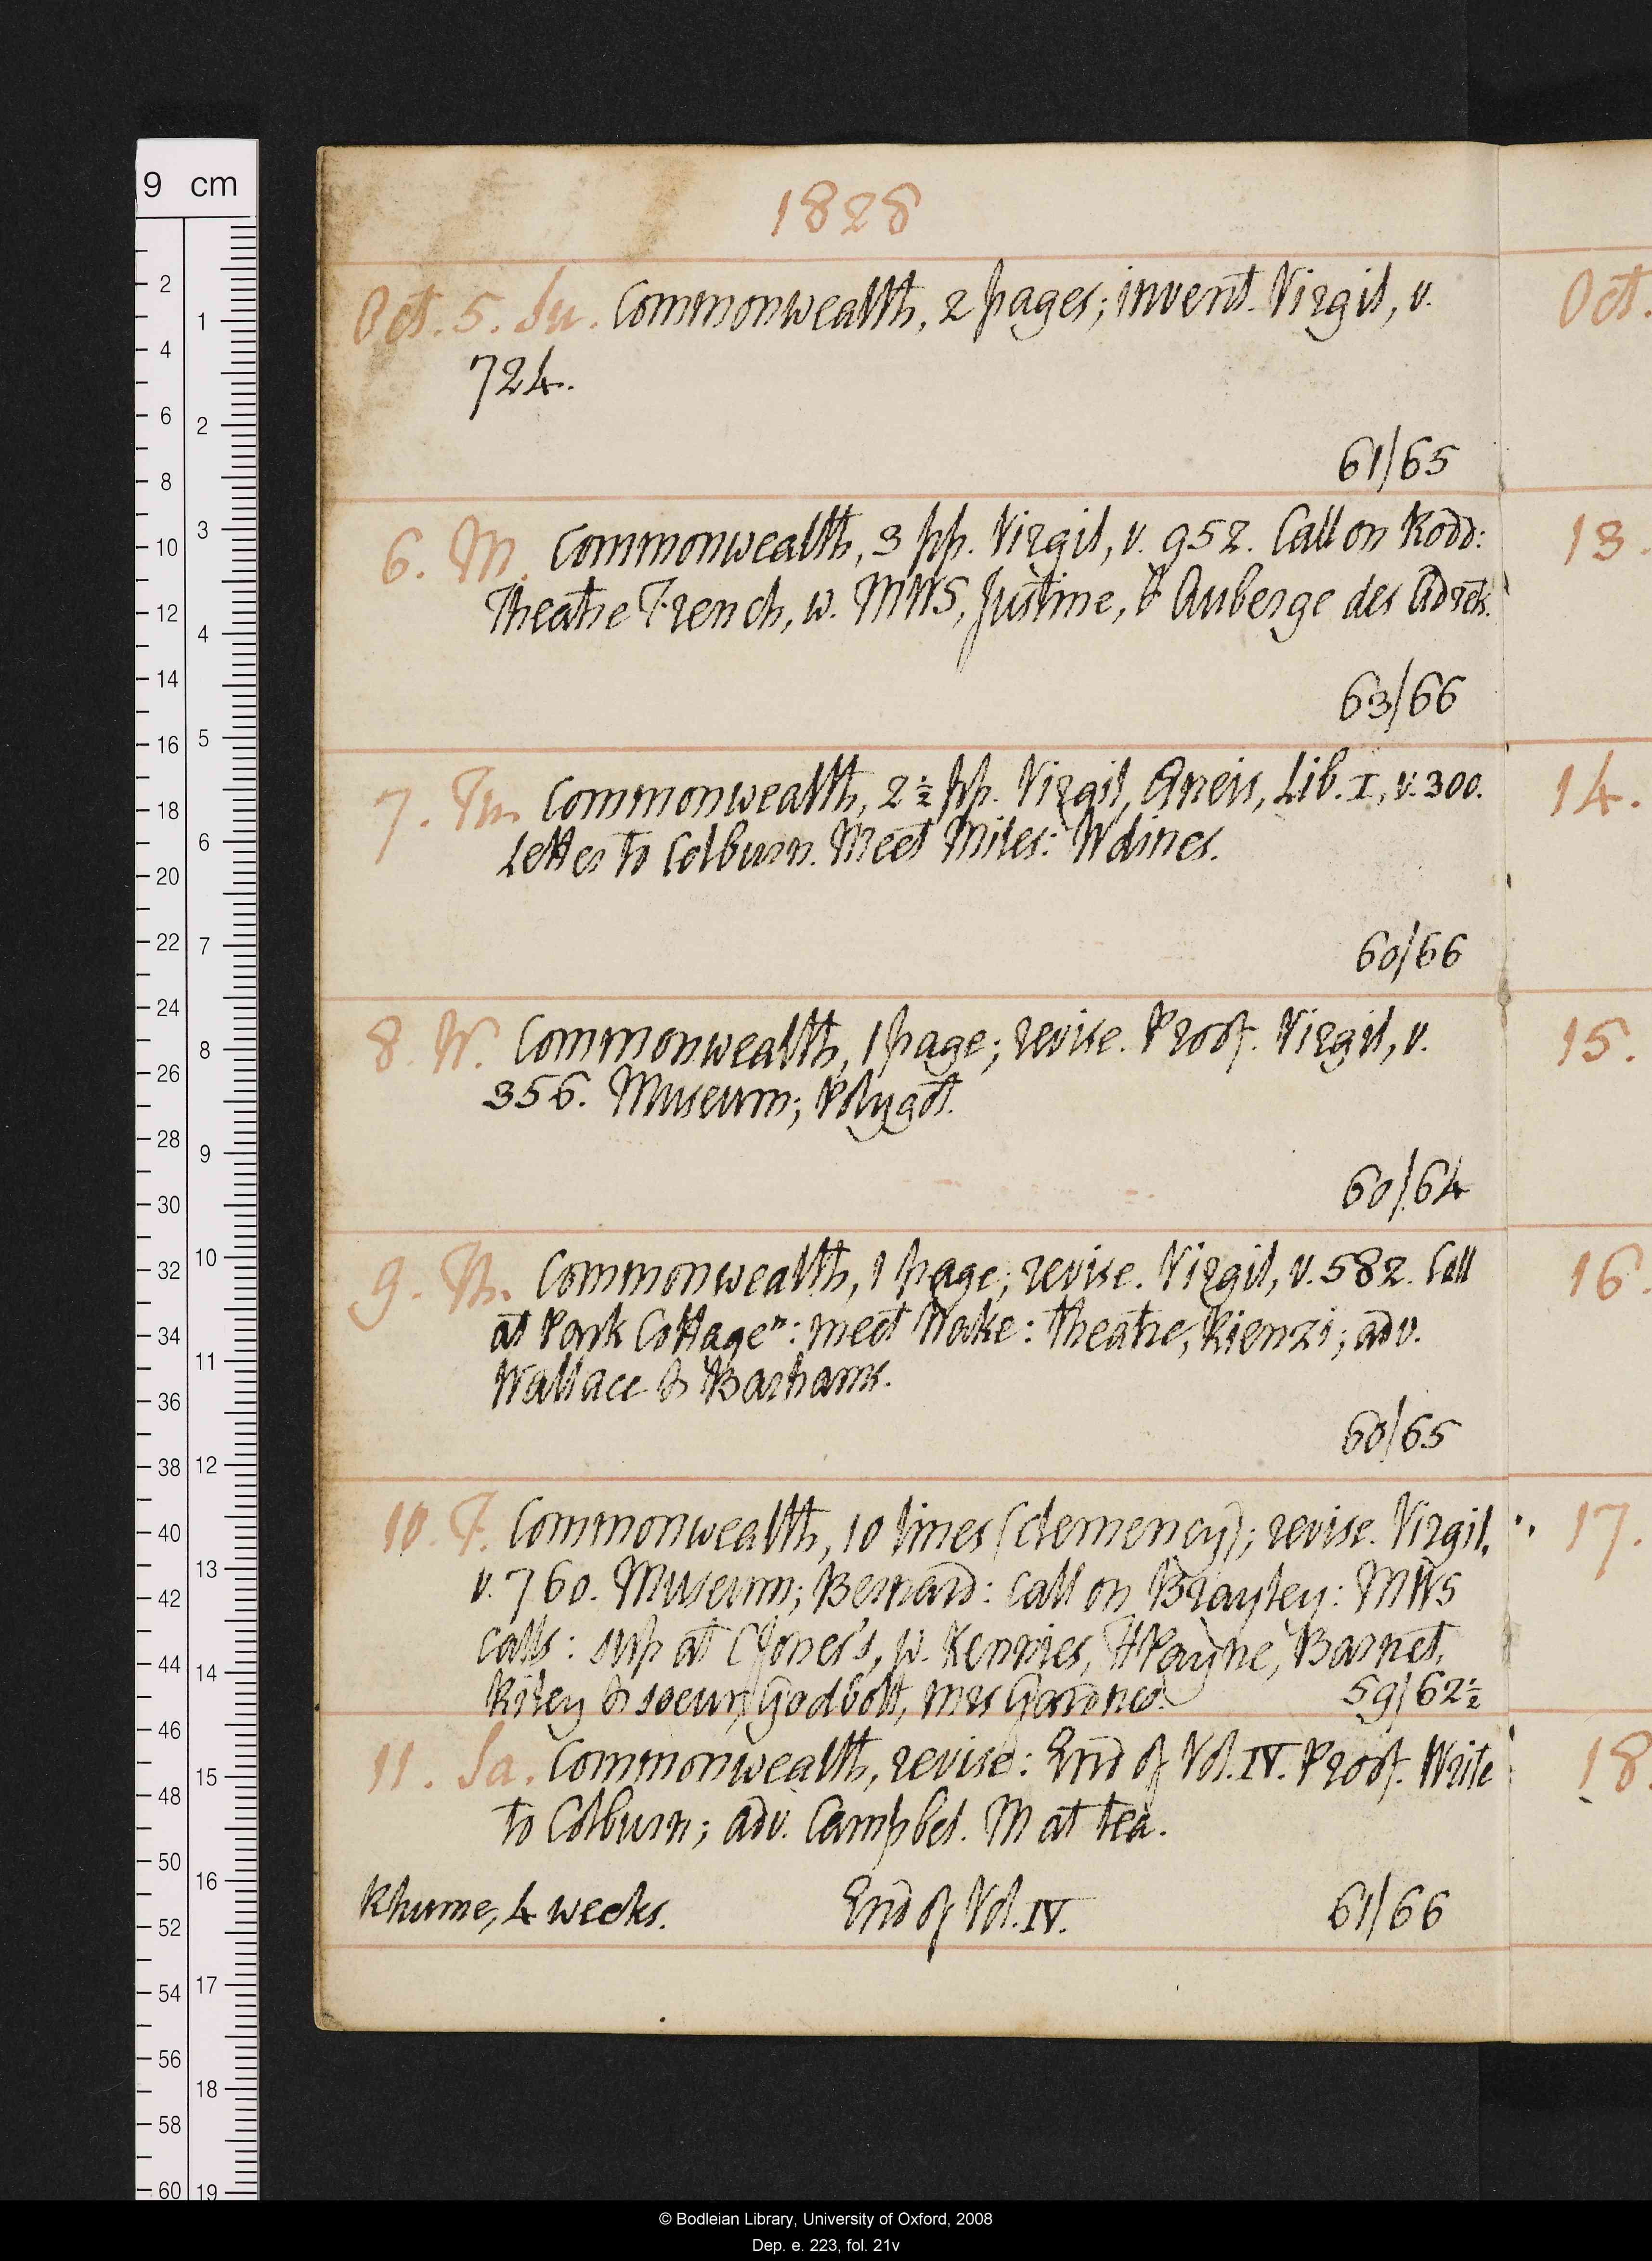 1828
Oct. 5. Su. Commonwealth, 2 pages; invent. Virgil, v.
724.
61/65
6. M. Commonwealth, 3 pp. Virgil, v. 952. Call on Rodd:
Theatre French, w. MWS, Justine, & Auberge des Adrets.
63/66
7. Tu. Commonwealth, 2½ pp. Virgil, Æneis, Lib. I, v. 300.
Letter to Colburn. Meet Miles: W dines.
60/66
8. W. Commonwealth, 1 page; revise. Proof. Virgil, v.
356. Museum; Polygot.
60/64
9. Th. Commonwealth, 1 page; revise. Virgil, v. 582. Call
at Park Cottage n: meet Wake: theatre, Rienzi; adv.
Wallace & Barhams.
60/65
10. F. Commonwealth, 10 lines (clemency); revise. Virgil,
v. 760. Museum; Bernard: call on Brayley: MWS
calls: sup at C Jones's, w. Kennies, H Payne, Barnet,
Riley & soeur, Godbolt, mrs Gardner. 59/62½
11. Sa. Commonwealth, revise: End of Vol. IV. Proof. Write
to Colburn; adv. Campbel. M at tea.
Rhume, 4 weeks. End of Vol. IV. 61/66
Oct.
13.
14.
15.
16.
17.
18.
9 cm
2
4
6
8
10
12
14
16
18
20
22
24
26
28
30
32
34
36
38
40
42
44
46
48
50
52
54
56
58
60
1
2
3
4
5
6
7
8
9
10
11
12
13
14
15
16
17
18
19
© Bodleian Library, University of Oxford, 2008
Dep. e. 223, fol. 21v